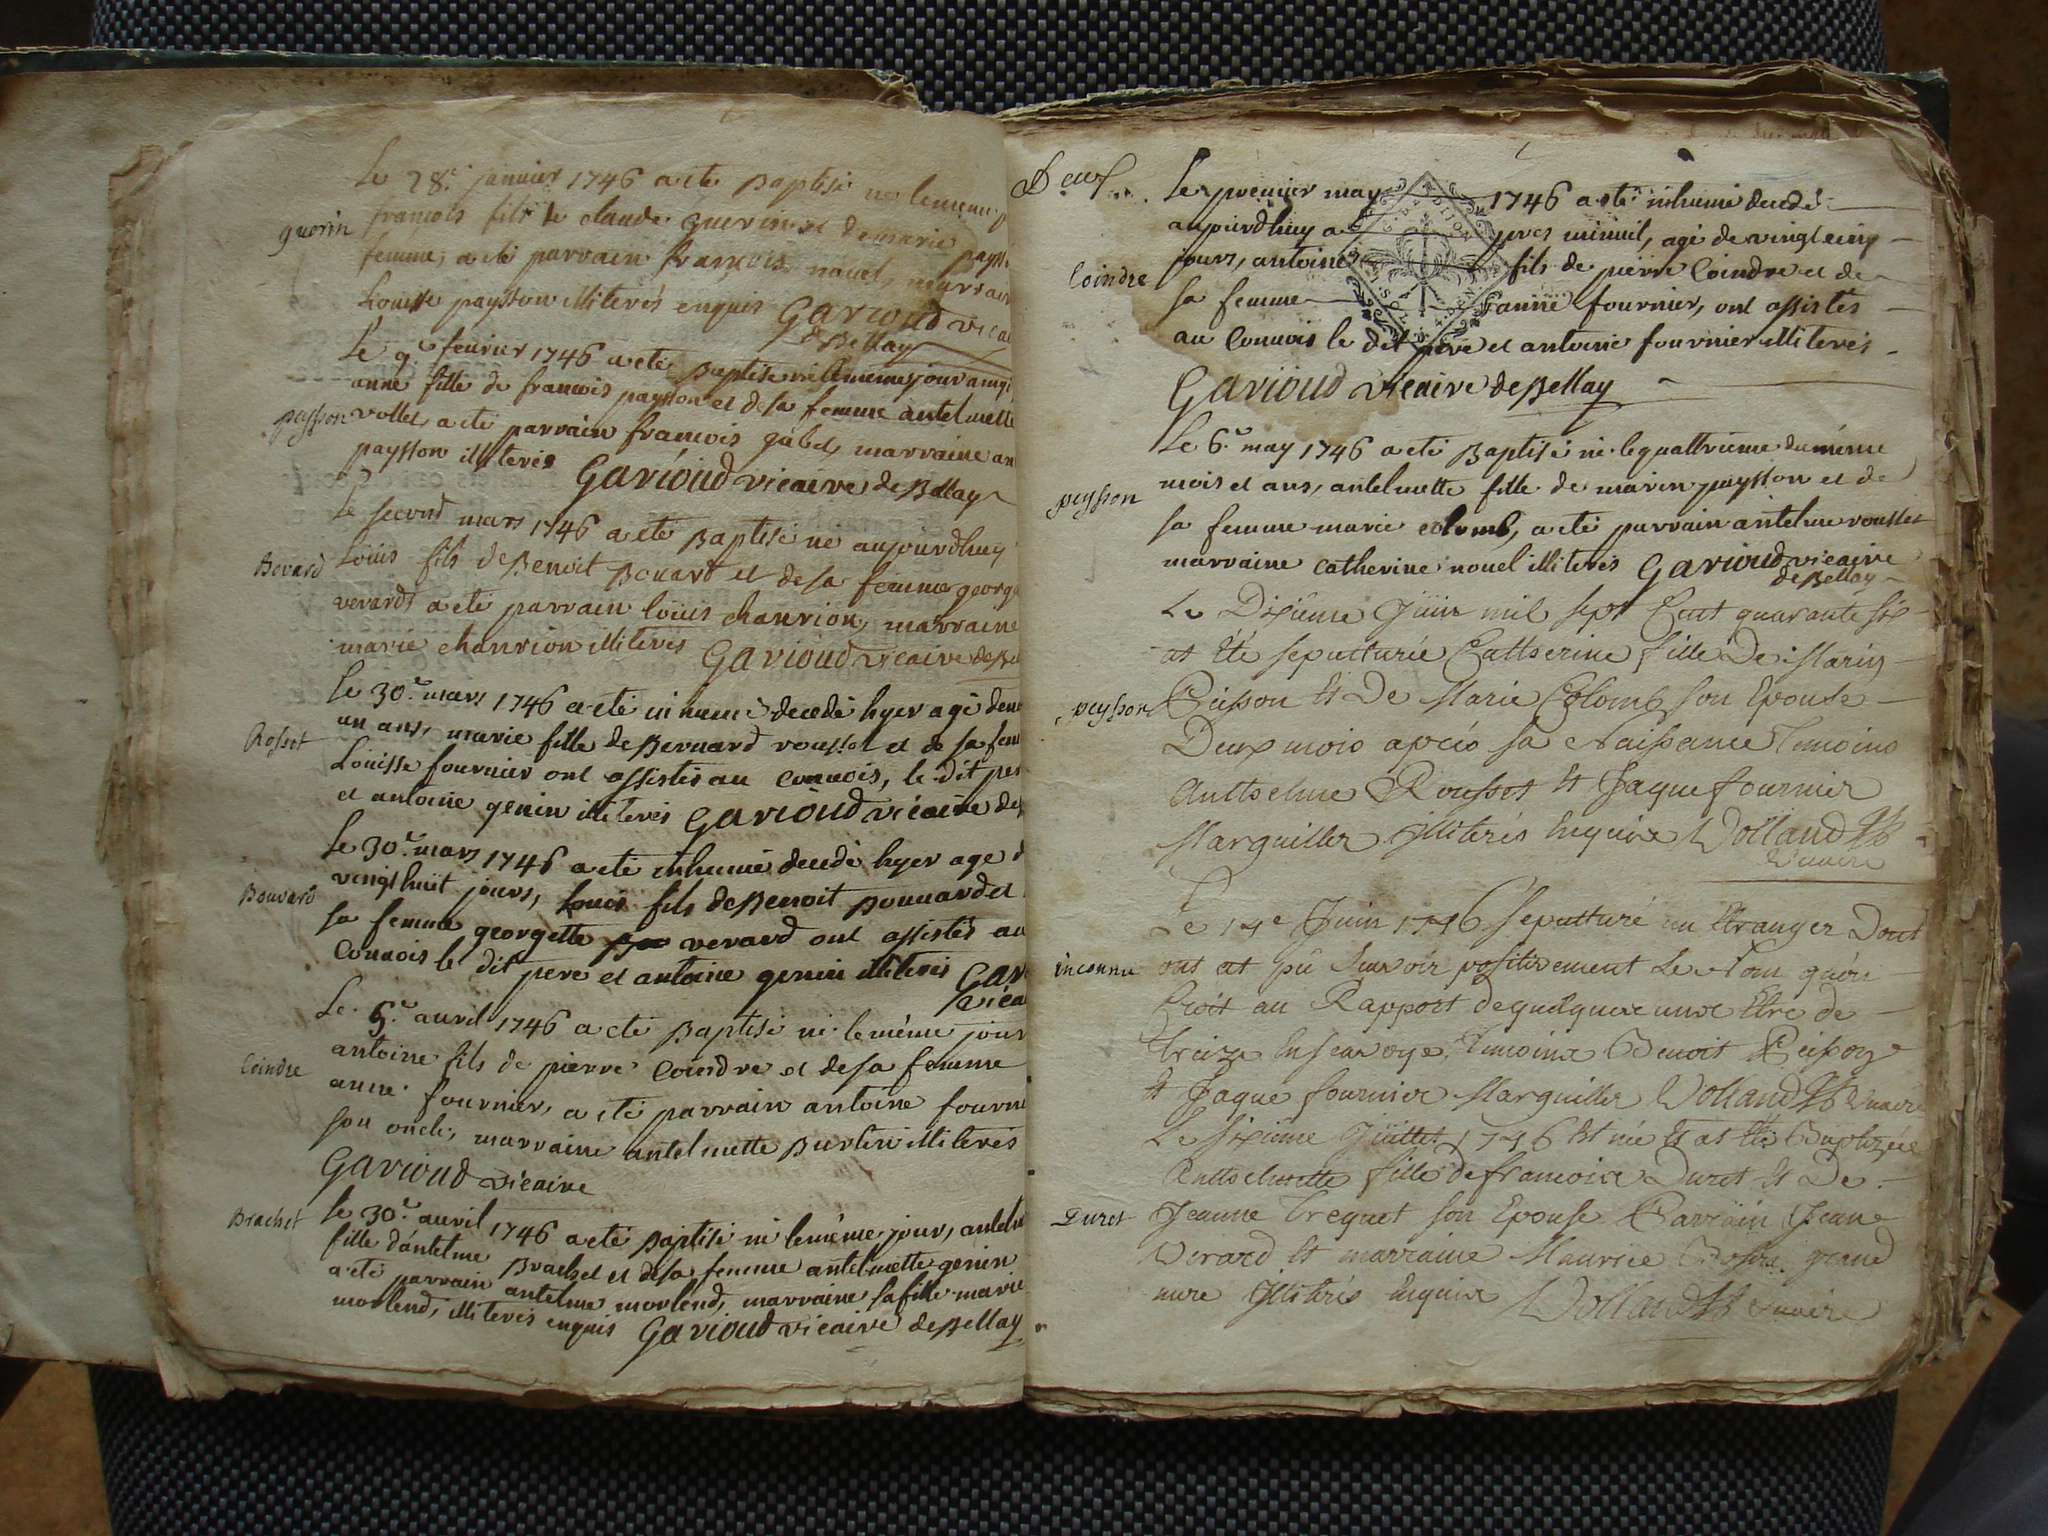 Le 28.e janvier 1746 a eté Baptisé né le meme j
guerin
francois fils de claude guerin et de marie payss
femme, a eté parrain francois nouel, marrain
Louise paysson illiterés enquis Garioud vicai
de Bellay
Le 9.e feurier 1746 a eté Baptisé né le meme jour
anne fille de francois paysson et de sa femme antelmette
peysson
vollet, a eté parrain francois gubet, marraine an
paysson illiterés Garioud vicaire de Bellay
Le second mars 1746 a eté Baptisé né aujourdhuy
Bovard
Loüis fils de Benoit Bouard et de sa femme georg
verard a eté parrain loüis chanrion, marraine
marie chanrion illiterés Garioud vicaire de Be
Le 30.e mars 1746 a eté inhumé decedé hyer agé den
un ans, marie fille de Bernard rousset et de sa fem
Rosset
Louisse fournier ont assistés au conuois, le dit per
et antoine genin illiterés Garioud vicaire de
Le 30.e mars 1746 a eté inhumé decedé hyer age d
vingt huit jours, Louis fils de Benoit Bouuard et
Bouvard
sa femme georgette verard ont assistés au
conuois le dit pere et antoine genin illiterés Gar
vica
Le 5.e auril 1746 a eté Baptisé né le même jour
antoine fils de pierre coindre et de sa femme
Coindre
anne fournier, a eté parrain antoine fourni
son oncle, marraine antelmette Burlin illiterés
Garioud vicaire
Brachet
Le 30.e auril 1746 a eté Baptisé né le même jour, antelm
fille d'antelme Brachet et de sa femme antelmette genin
a eté parrain antelme morlend, marraine sa fille marie
morlend, illiterés enquis Garioud vicaire de Bellay
Le premier may 1746 a eté inhumé decedé
aujourdhuy a pres minuit, agé de vingt cinq
jours, antoine fils de pierre Coindre et de
Coindre
sa femme anne fournier, ont assistés
au Conuois le dit pere et antoine fournier illiterés
Garioud vicaire de Bellay
Le 6.e may 1746 a eté Baptisé né le quattrieme du même
mois et ans, antelmette fille de marin paysson et de
peysson
sa femme marie colomb, a eté parrain antelme rousset
marraine catherine nouel illiterés Garioud vicaire
de Bellay
Le Dixieme Juin mil sept Cent quarante six
at Eté sepulturée Cattherine fille De Marin
peysson
Peisson Et De Marie Colomb son Epouse
Deux mois aprés sa Naissance Temoins
Anthelme Rousset Et Jaque fournier
Marguiller Illiterés Enquire Volland
Vicaire
Le 14e Juin 1746 sepulturé un Etranger Dont
inconnu
ont at pü sçavoir positivement Le Nom qu'on
Croit au Rapport de quelque unx Etre de
Et Jaque fournier Marguiller Volland Vicaire
Le sixieme Juillet 1746 Est née Et at Eté Baptizée
Anthelmette fille de francoix Duret Et De
Duret
Jeanne Treguet son Epouse Parrain Jean
Verard Et marraine Maurice grand
mere Illiterés Enquire Volland Vicaire